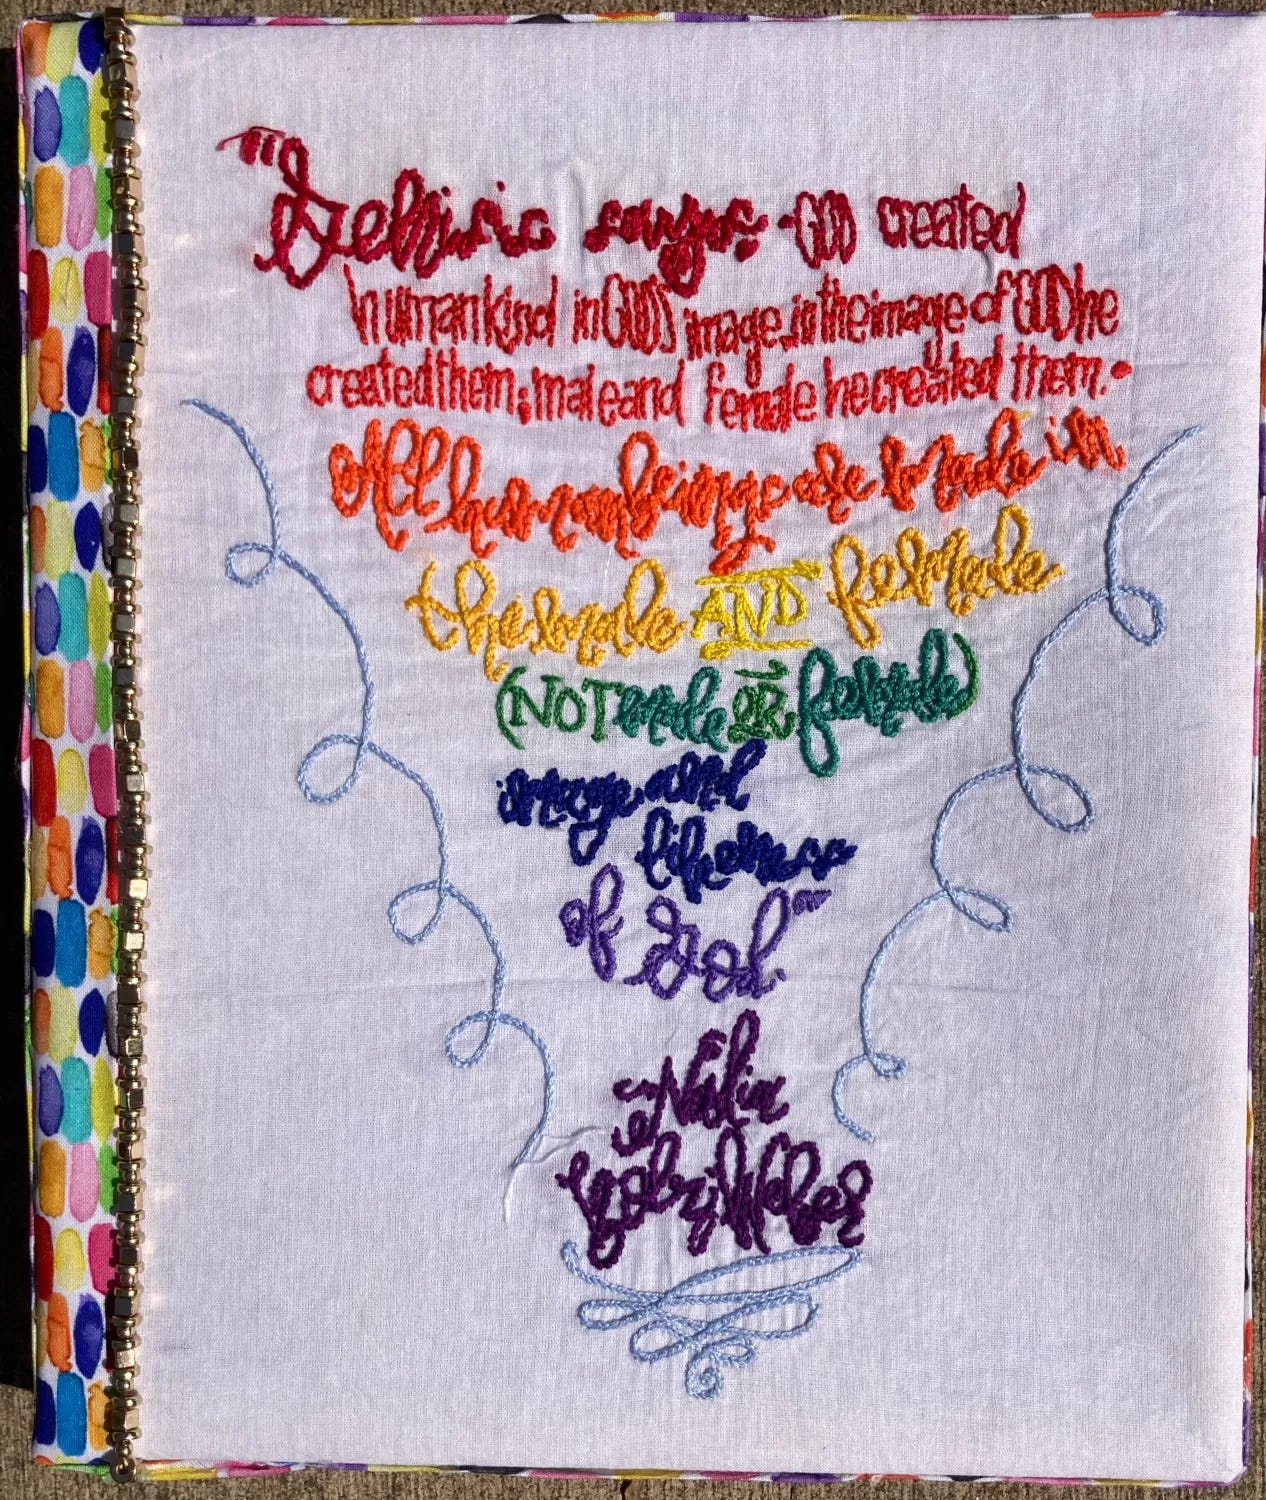 "Genesis says: "GOD created
humankind in GOD'S image, in the image of GOD he
created them; male and female he created them."
All human beings are made in
the male AND female
(NOT male OR female)
image and
likeness
of God"